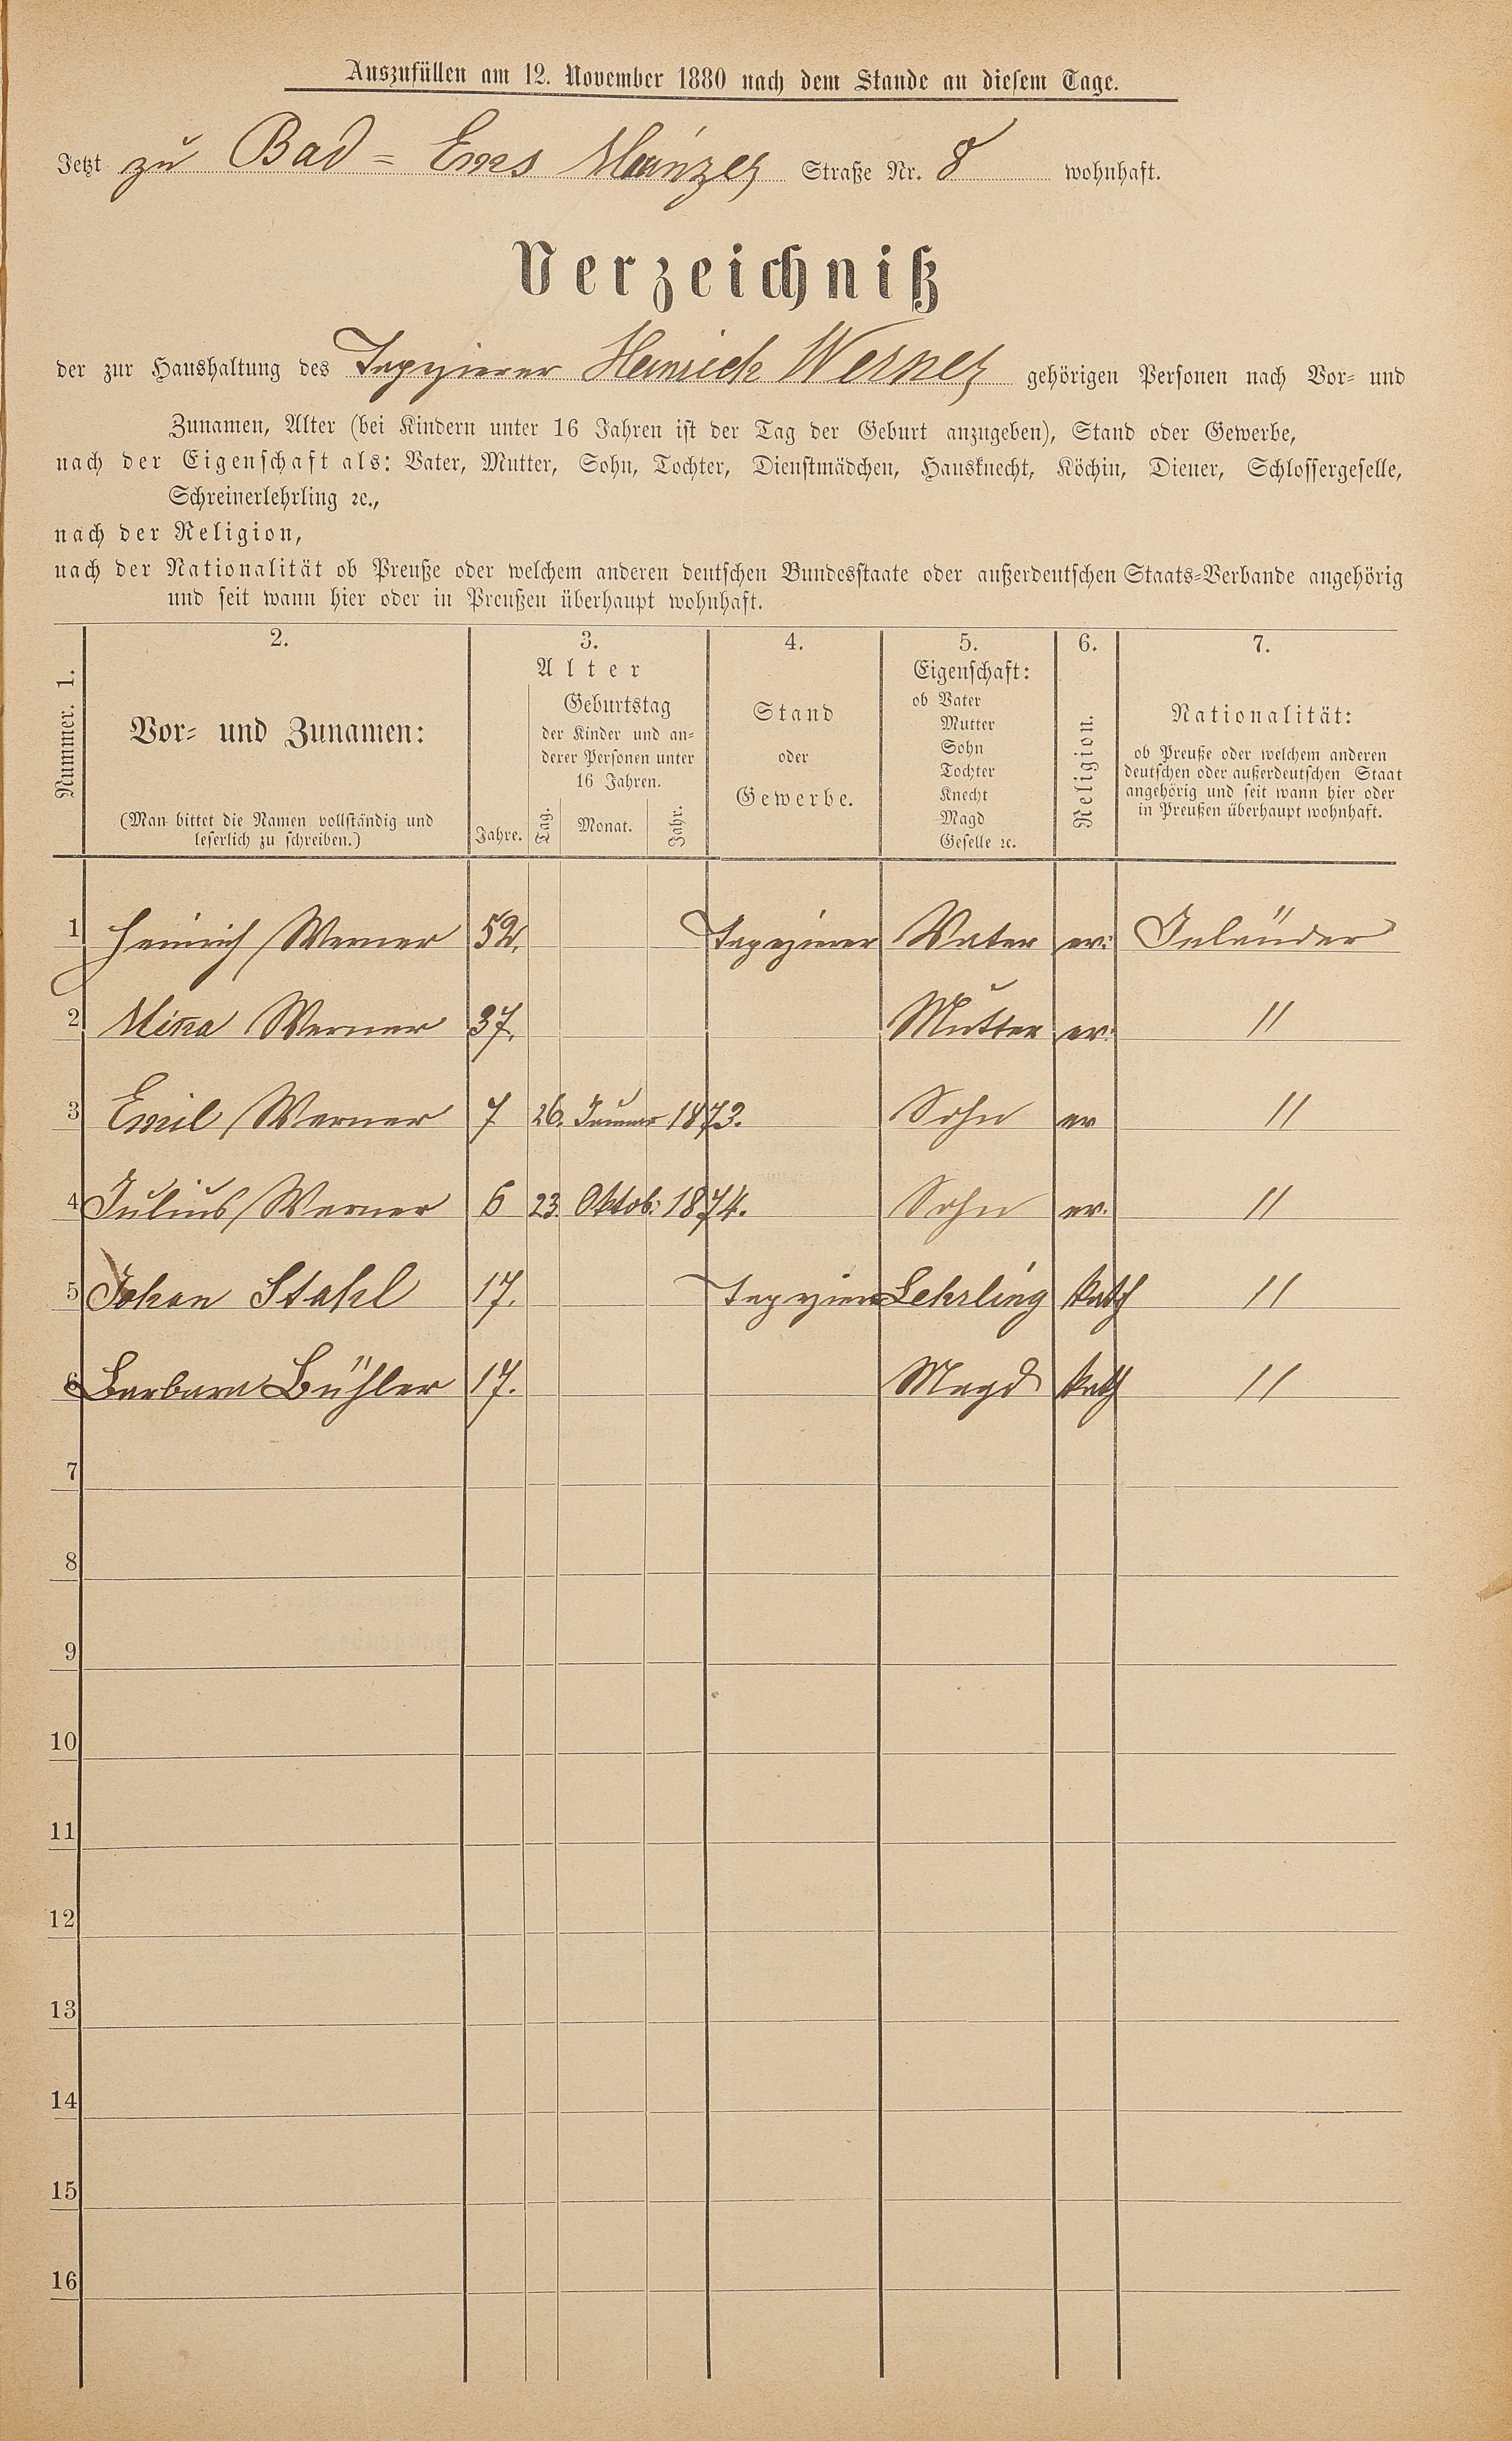 Auszufüllen am 12. November 1880 nach dem Stande an diesem Tage.
Jetzt zu Bad-Ems Mainzer Straße Nr. 8 wohnhaft.
Verzeichniß
der zur Haushaltung des Tapezierer Heinrich Werner gehörigen Personen nach Vor- und
Zunamen, Alter (bei Kindern unter 16 Jahren ist der Tag der Geburt anzugeben), Stand oder Gewerbe,
nach der Eigenschaft als: Vater, Mutter, Sohn, Tochter, Dienstmädchen, Hausknecht, Köchin, Diener, Schlossergeselle,
Schreinerlehrling ꝛc.,
nach der Religion,
nach der Nationalität ob Preuße oder welchem anderen deutschen Bundesstaate oder außerdeutschen Staats-Verbande angehörig
und seit wann hier oder in Preußen überhaupt wohnhaft.
Nummer. 1.
2.
Vor- und Zunamen:
(Man bittet die Namen vollständig und
leserlich zu schreiben.)
3.
Alter
Geburtstag
der Kinder und an-
derer Personen unter
16 Jahren.
Jahre. Tag. Monat. Jahr.
4.
Stand
oder
Gewerbe.
5.
Eigenschaft:
ob Vater
Mutter
Sohn
Tochter
Knecht
Magd
Geselle ꝛc.
6.
Religion.
7.
Nationalität:
ob Preuße oder welchem anderen
deutschen oder außerdeutschen Staat
angehörig und seit wann hier oder
in Preußen überhaupt wohnhaft.
1 Heinrich Werner 52. Tapezierer Vater ev: Inländer
2 Mina Werner 37. Mutter ev: "
3 Emil Werner 7 26. Januar 1873. Sohn ev "
4 Julius Werner 6 23. Oktob: 1874. Sohn ev. "
5 Johan Stahl 17. Tapezierer Lehrling kath "
6 Barbara Bühler 17. Magd kath "
7
8
9
10
11
12
13
14
15
16